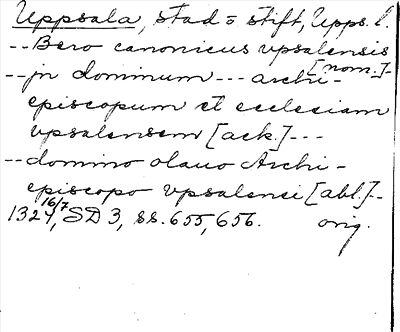 Uppsala, stad o stift, Upps. l.
-- Bero canonicus vpsalensis
[nom.]-
-- jn dominum --- archi-
episcopum et ecclesiam
vpsalensem [ack.] ---
-- domino olauo Archi-
episcopo vpsalensi [abl.]--
1324 16/7, SD 3, ss. 655, 656. orig.